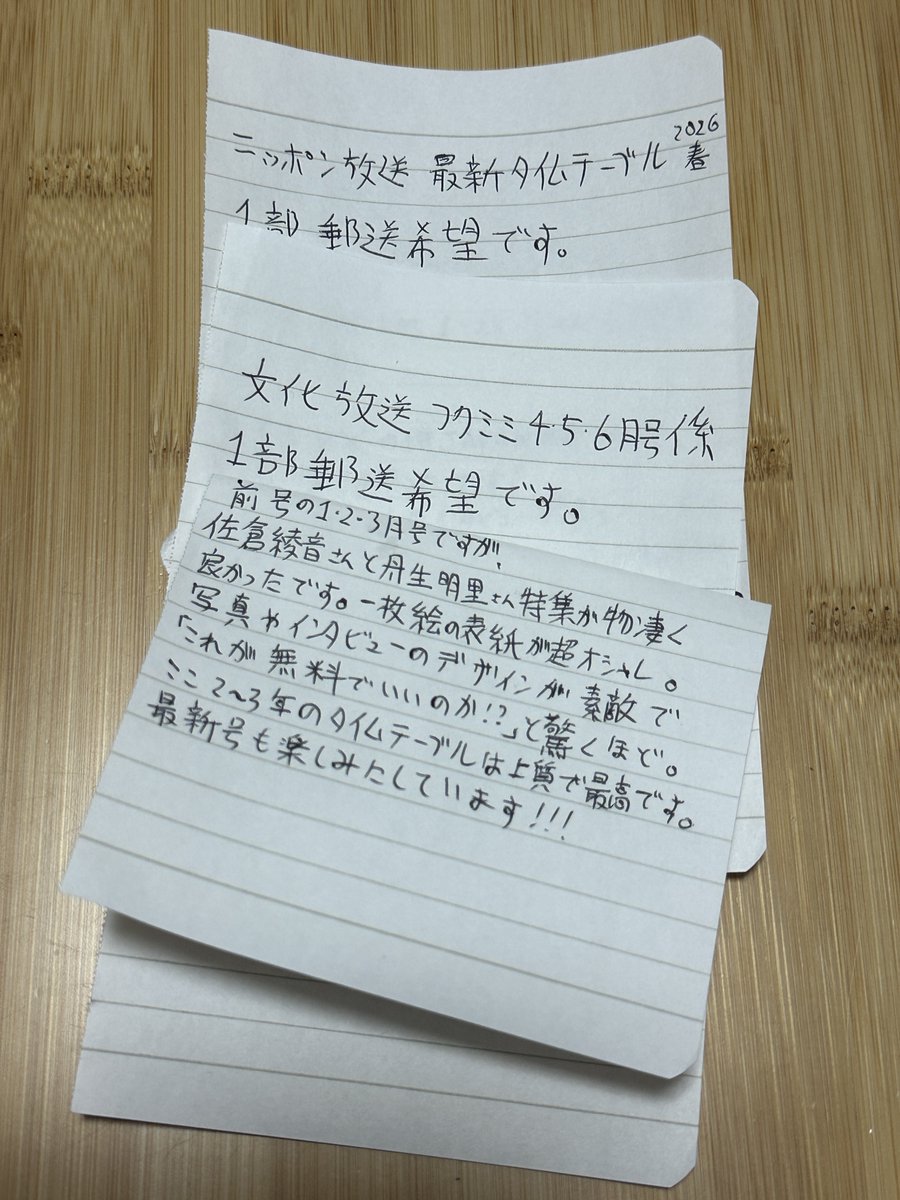 ニッポン放送 最新タイムテーブル 2026春
1部 郵送希望です。
文化放送 フクミミ4・5・6月号係
1部郵送希望です。
前号の1・2・3月号ですが、
佐倉綾音さんと丹生明里さん特集が物凄く
良かったです。一枚絵の表紙が超オシャレ。
写真やインタビューのデザインが素敵で
「これが無料でいいのか!?」と驚くほど。
ここ2〜3年のタイムテーブルは上質で最高です。
最新号も楽しみにしています!!!